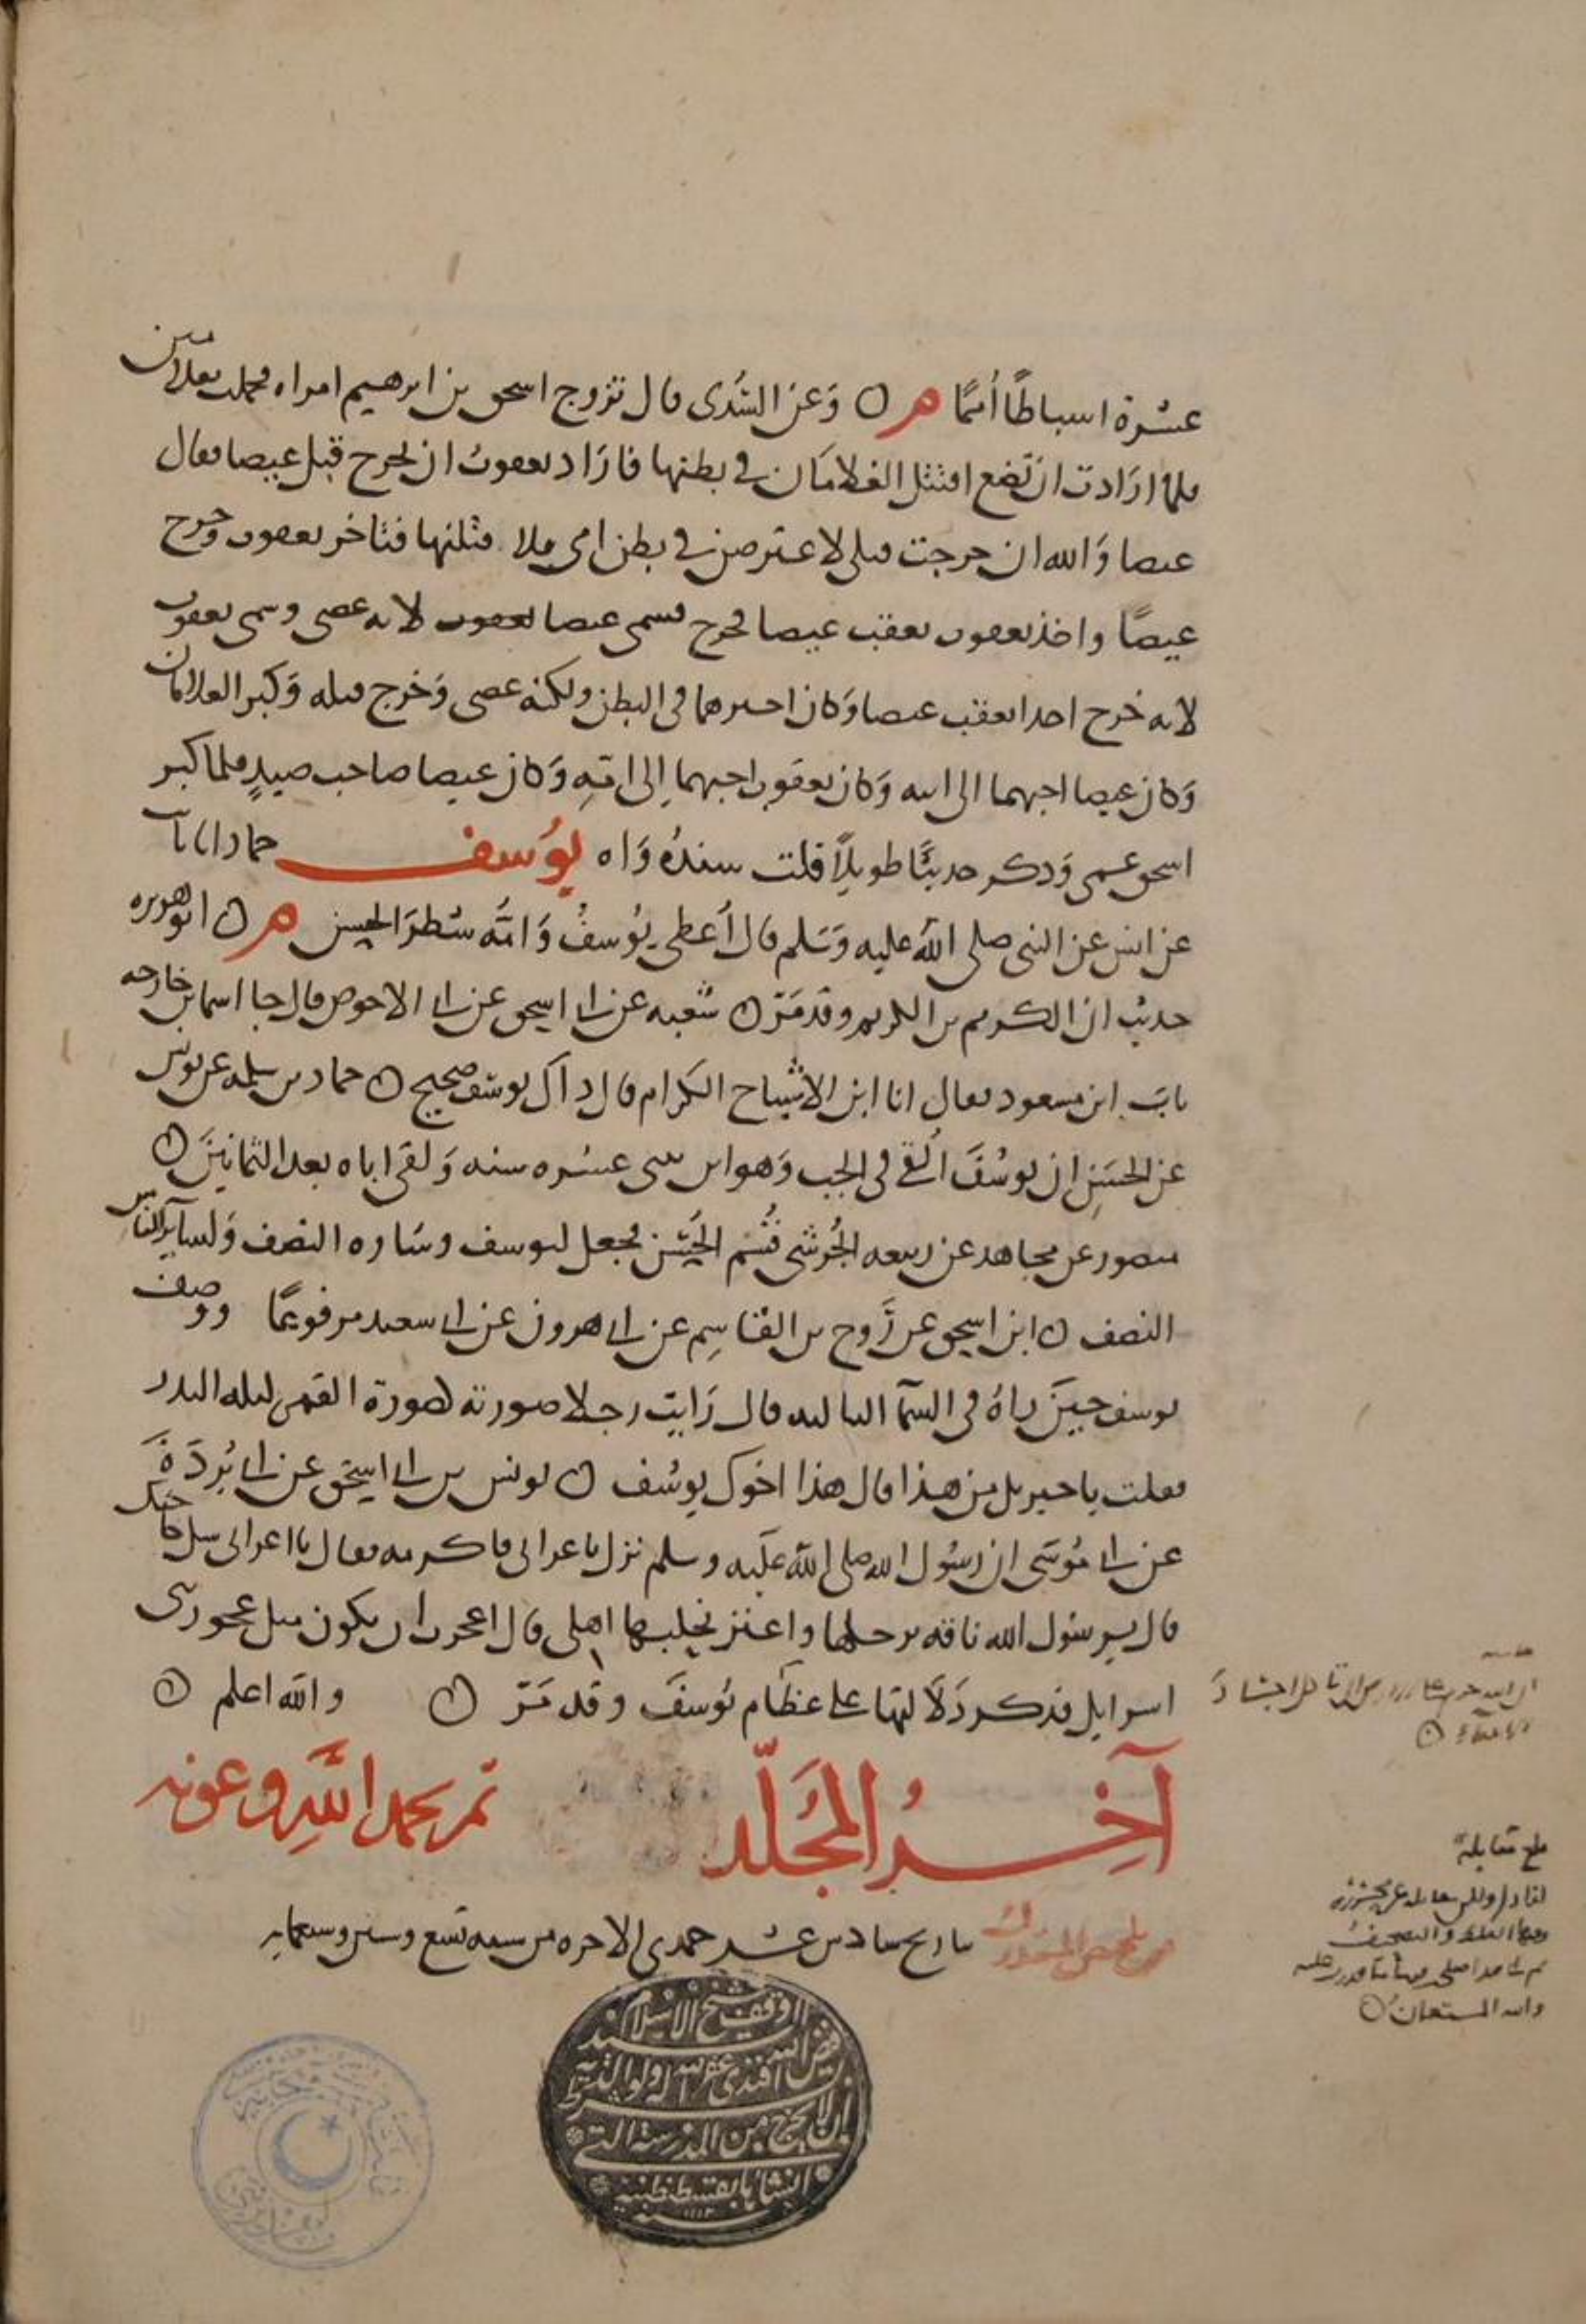 عشرة اسباطًا أممًا م ٥ وَعن السُّدى قال تزوج اسحق بن ابرهيم امراه فحملت بغلامين
فلما ارَادت ان تَضع اقتتل الغلامَان في بطنها فارَاد يعقوبُ ان يخرج قبل عيصا فقال
عيصا وَالله ان خرجت قبلى لاعترضن في بطن امى ولاقتلنها فتاخر يعقوب وخرج
عيصًا واخذ يعقوب بعقب عيصا فخرج فسمى عيصا لانه عصى وسمى يعقوب
لانه خرج اخذا بعقب عيصا وَكان اكبرهما في البطن ولكنه عصى وَخرج قبله وَكبر الغلامان
وَكان عيصا احبهما الى ابيه وَكان يعقوب احبهما إلى امّهِ وَكان عيصا صاحب صيدٍ فلما كبر
اسحق عمى وَذكر حديثًا طويلاً قلت سندهُ وَاه يوُسف حماد انا ثابت
عن انس عن النبي صلى الله عليه وَسَلم قال أعطى يوُسفُ وَامُّه شطرَ الحسن م ٥ ابو هريره
حديث ان الكريم بن الكريم وقد مَرّ ٥ شعبه عن ابى اسحق عن ابى الاحوص قال جا اسما بن خارجه
بابَ ابن مسعود فقال انا ابن الاشياخ الكرام قال ذاك يوسف صحيح ٥ حماد بن سلمه عن يونس
عن الحسَنِ ان يوسُفَ اُلقى فى الجب وَهو ابن ثنتى عشره سنه وَلقى اباه بعد الثمانينَ ٥
منصور عن مجاهد عن ربيعه الجُرشى قُسُم الحُسْن فجعل ليوسف وسَاره النصف وَلسايرالناس
النصف ٥ ابن اسحق عن رَوح بن القاسِم عن ابى هرون عن ابى سعيد مرفوعًا ووصف
يوسف حينَ راهُ فى السمآ الثالثه قال رَايت رجلا صورته صورة القمر ليله البدر
فقلت يا جبريل من هذا قال هذا اخوك يوسُف ٥ يونس بن ابى اسحق عن ابى بُردَةَ
عن ابى مُوسَى ان رَسُول الله صلى الله عَليه وسلم نزل باعرابى فاكرمه فقال يااعرابى سل حاجتك
قال يرسُول الله ناقه برحلها واعنز يحلبها اهلى قال اعجزت ان يكون مثل عجوز بنى
اسرايل فذكر دَلَالتها على عظام يوُسفَ وقد مَرّ ٥ والله اعلم ٥
آخِرُ المُجَلّد تم بحمد اللهِ وعونه
تاريخ سادس عشر جمدى الاخره من سنه تسع وستين وسبعمايه
بلغ مقابلة
والله المستعان ٥
وقف شيخ الاسلام السيد
فيض الله افندى غفر الله له ولوالديه
بشرط ان لا يخرج من المدرسة التى
انشاها بقسطنطينية
سنة ١١١٣